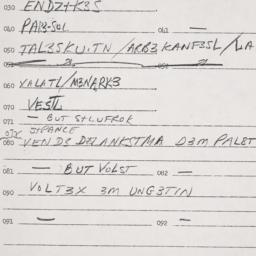 030 ENDZ+K3S
040 PAI8-SOL 041 —
050 TAL3SKU.TN / ARB3KANF3SL / LA
060 XALATL / M3NARK3
070 VESTL
071 — BUT S+LUFROK
080 VENDS D3LANKSTMA D3M PAL8T
081 — BUT VOLST 082 —
090 VOLT3X 3M UNG3TIN
091 — 092 —